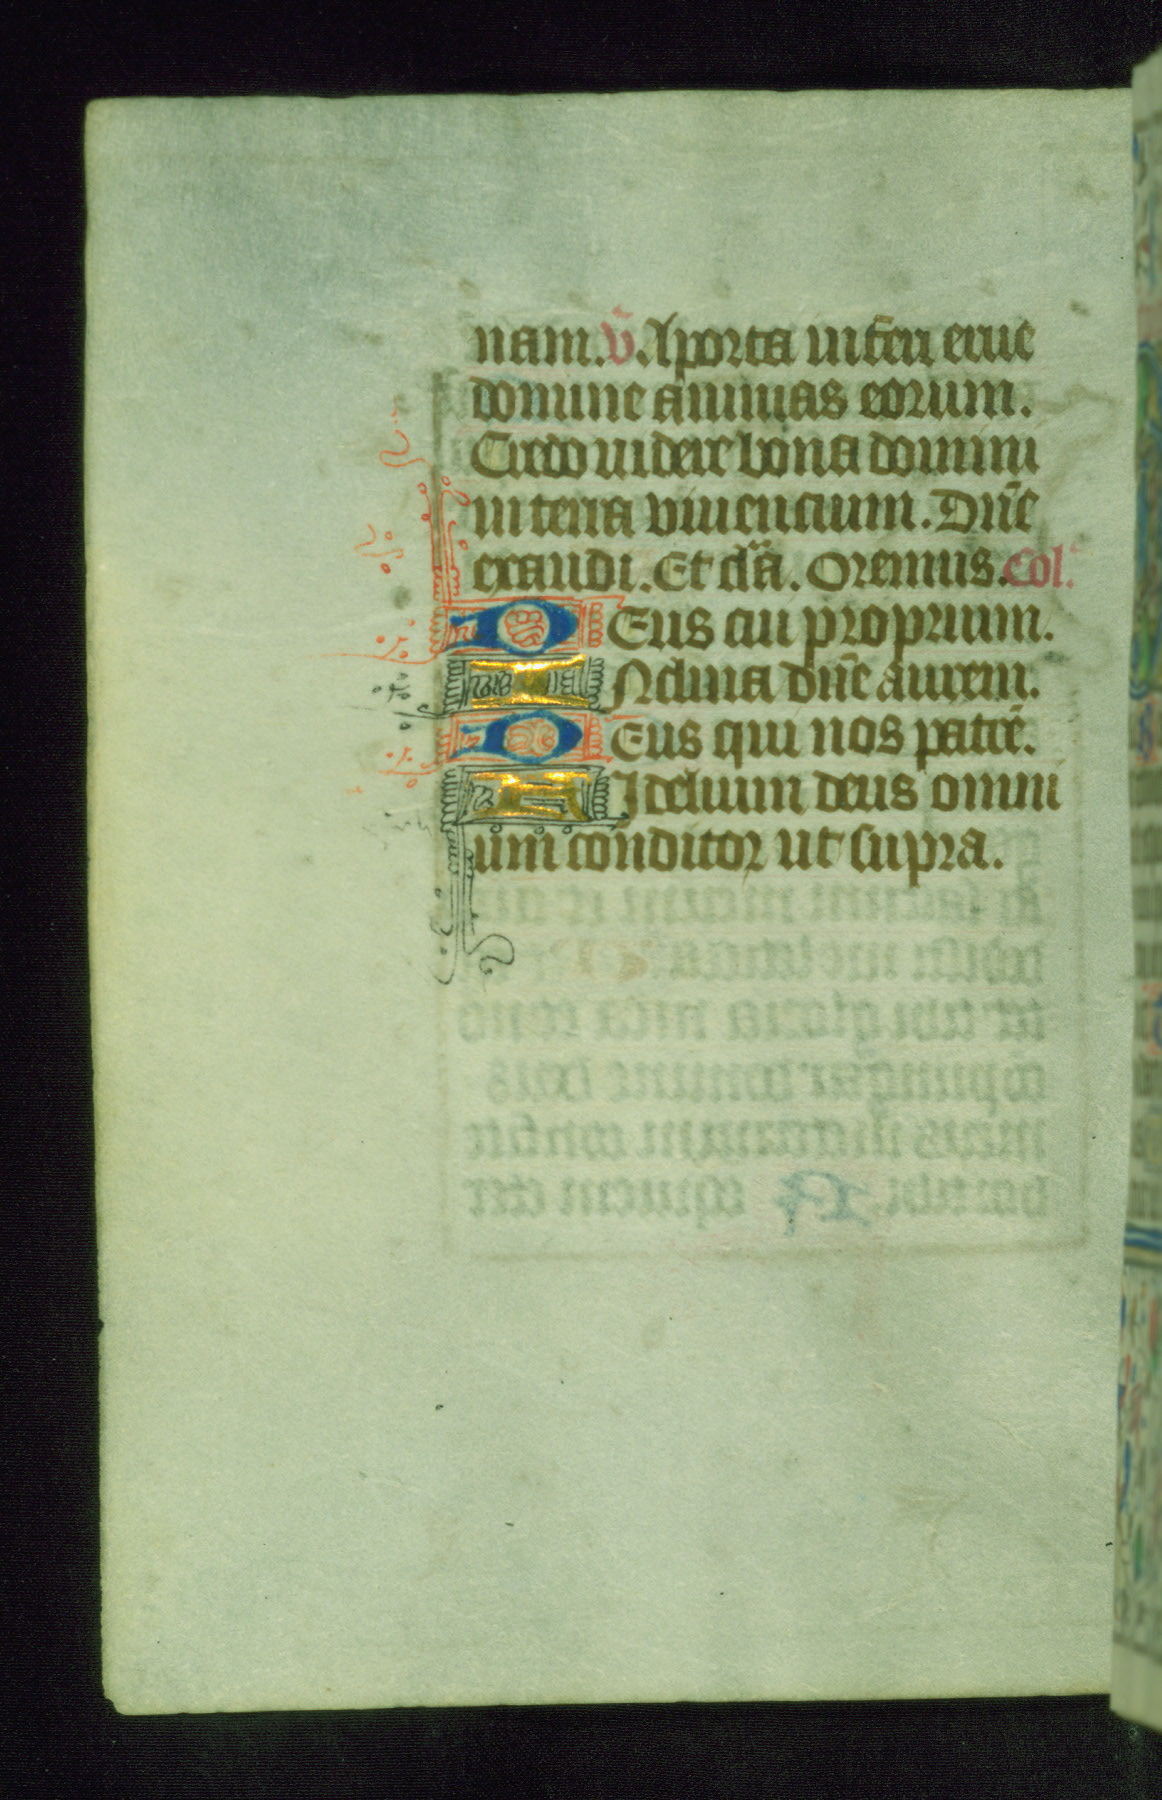 nam. v̄. A porta inferi erue
domine animas eorum.
Credo videre bona domini
in terra viuencium. Dn̄e
exaudi. Et cla. Oremus. Col.
DEus cui proprium.
INclina dn̄e aurem.
DEus qui nos patrē.
FIdelium deus omni
um conditor ut supra.